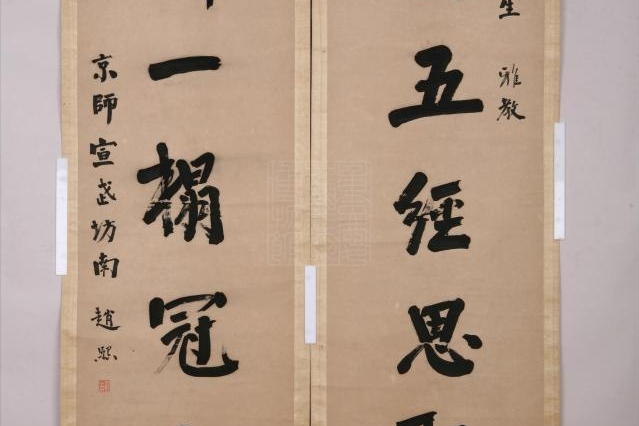 生 雅教
五經思
一榻冠
京師宣武坊南 趙熙